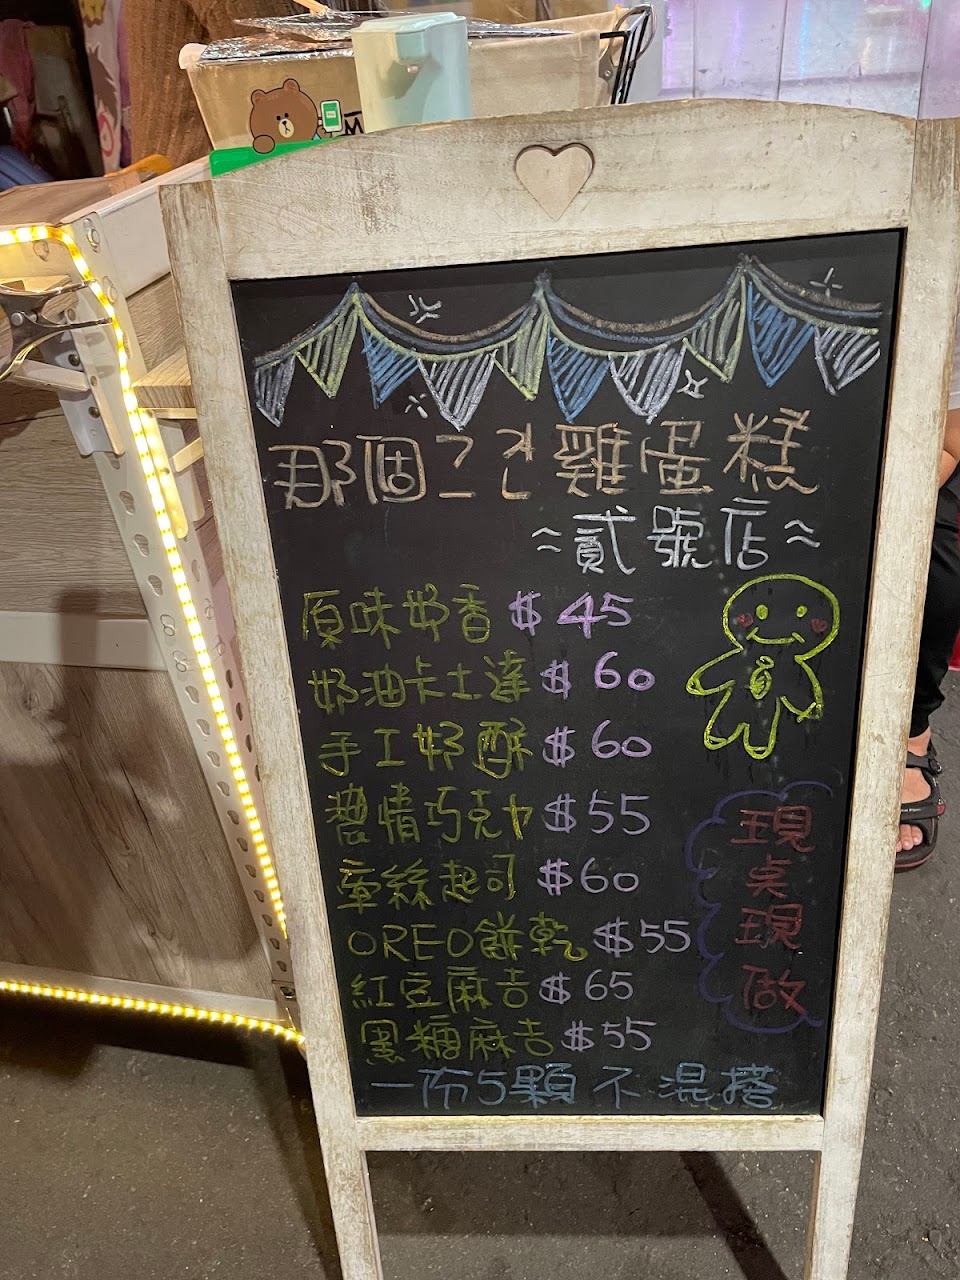 那個ㄍㄜ雞蛋糕
~貳號店~
原味奶香$45
奶油卡士達$60
手工奶酥$60
濃情巧克力$55
牽絲起司$60
OREO餅乾$55
紅豆麻吉$65
黑糖麻吉$55
一份5顆不混搭
現
桌
現
做